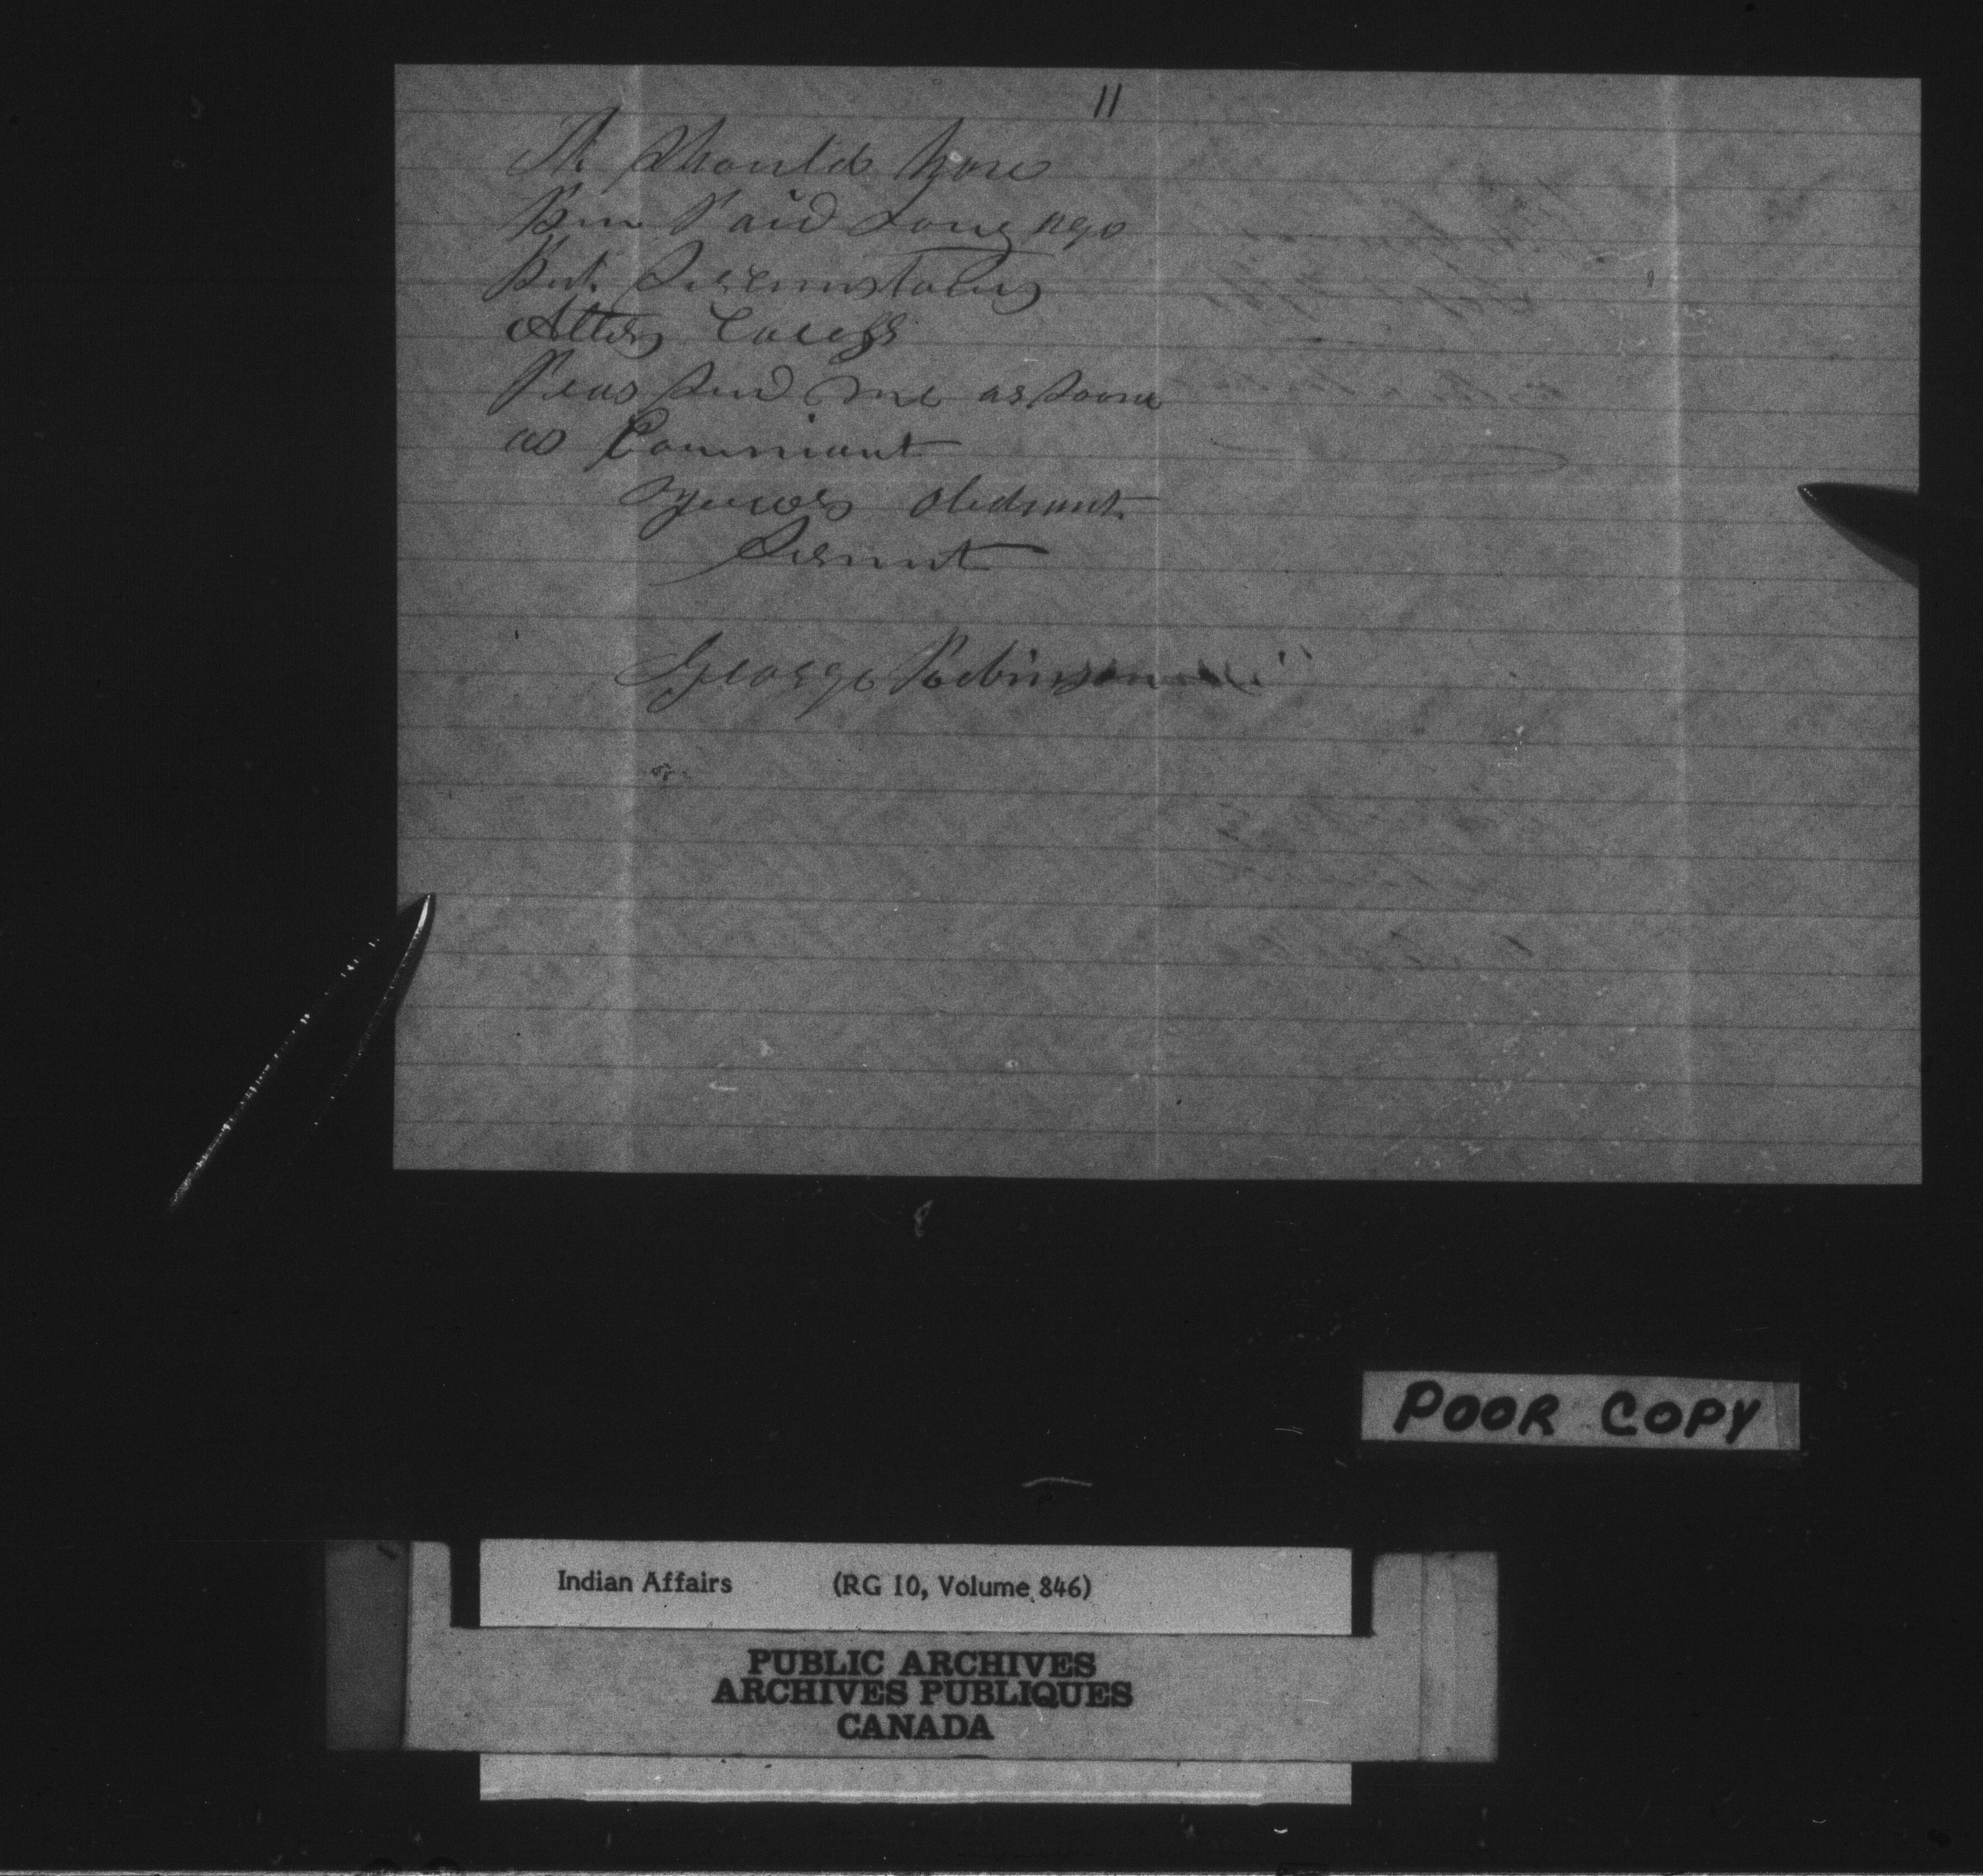 11
It should have
Bin Paid Long ago
But Sircumstances
Alters Caces
Peas send me as soone
as Conveniant
yours obedeant
Servnt
George Robinson
POOR COPY
Indian Affairs (RG 10, Volume 846)
PUBLIC ARCHIVES
ARCHIVES PUBLIQUES
CANADA